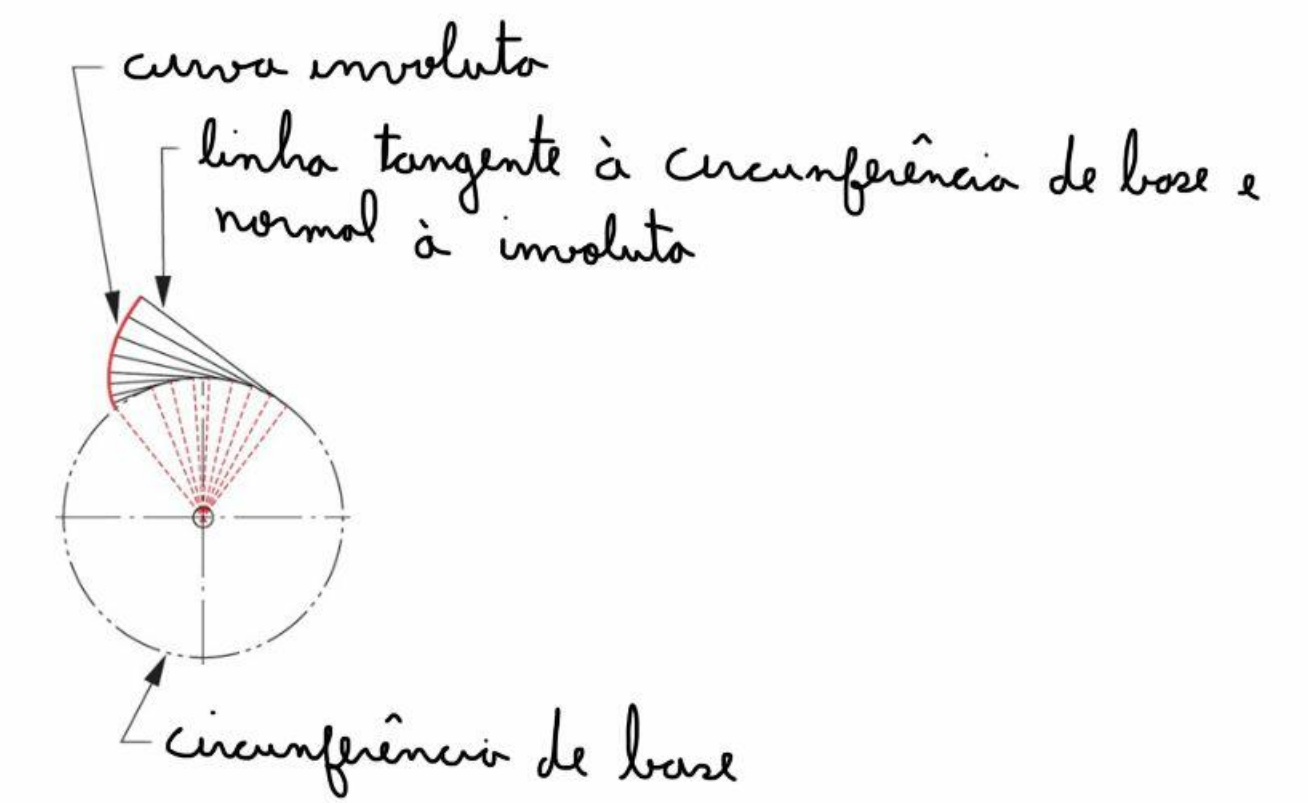 curva involuta
linha tangente à circunferência de base e
normal à involuta
circunferência de base